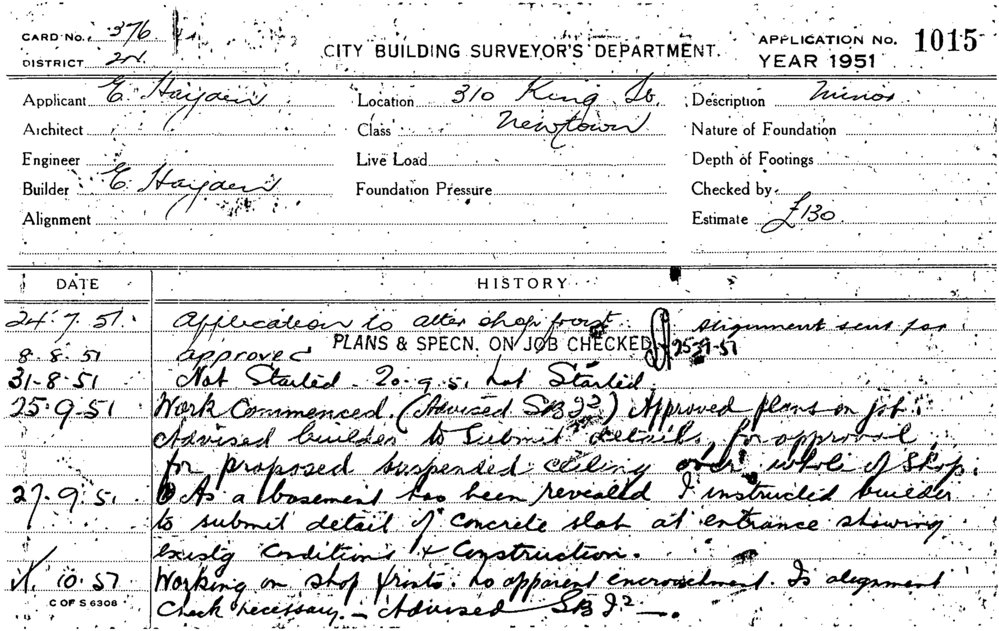 CARD No. 376
DISTRICT 2N.
CITY BUILDING SURVEYOR'S DEPARTMENT.
APPLICATION No. 1015
YEAR 1951
Applicant E. Hayden
Location 310 King St.
Description Minor
Architect
Class Newtown
Nature of Foundation
Engineer
Live Load
Depth of Footings
Builder E. Hayden
Foundation Pressure
Checked by
Alignment
Estimate £130
DATE HISTORY
24.7.51. Application to alter shop front. Alignment sent for
8.8.51 approved PLANS & SPECN. ON JOB CHECKED 25-9-51
31-8-51 Not Started. 20.9.51 not Started.
25.9.51 Work Commenced. (Advised SBI2) Approved plans on job.
Advised builder to submit details for approval
for proposed suspended ceiling over whole of Shop.
27.9.51 As a basement has been revealed I instructed builder
to submit detail of concrete slab at entrance showing
existg Conditions & Construction.
10.51 Working on shop fronts. No apparent encroachment. Is alignment
C OF S 6308
Check necessary. – Advised SBI2 –.